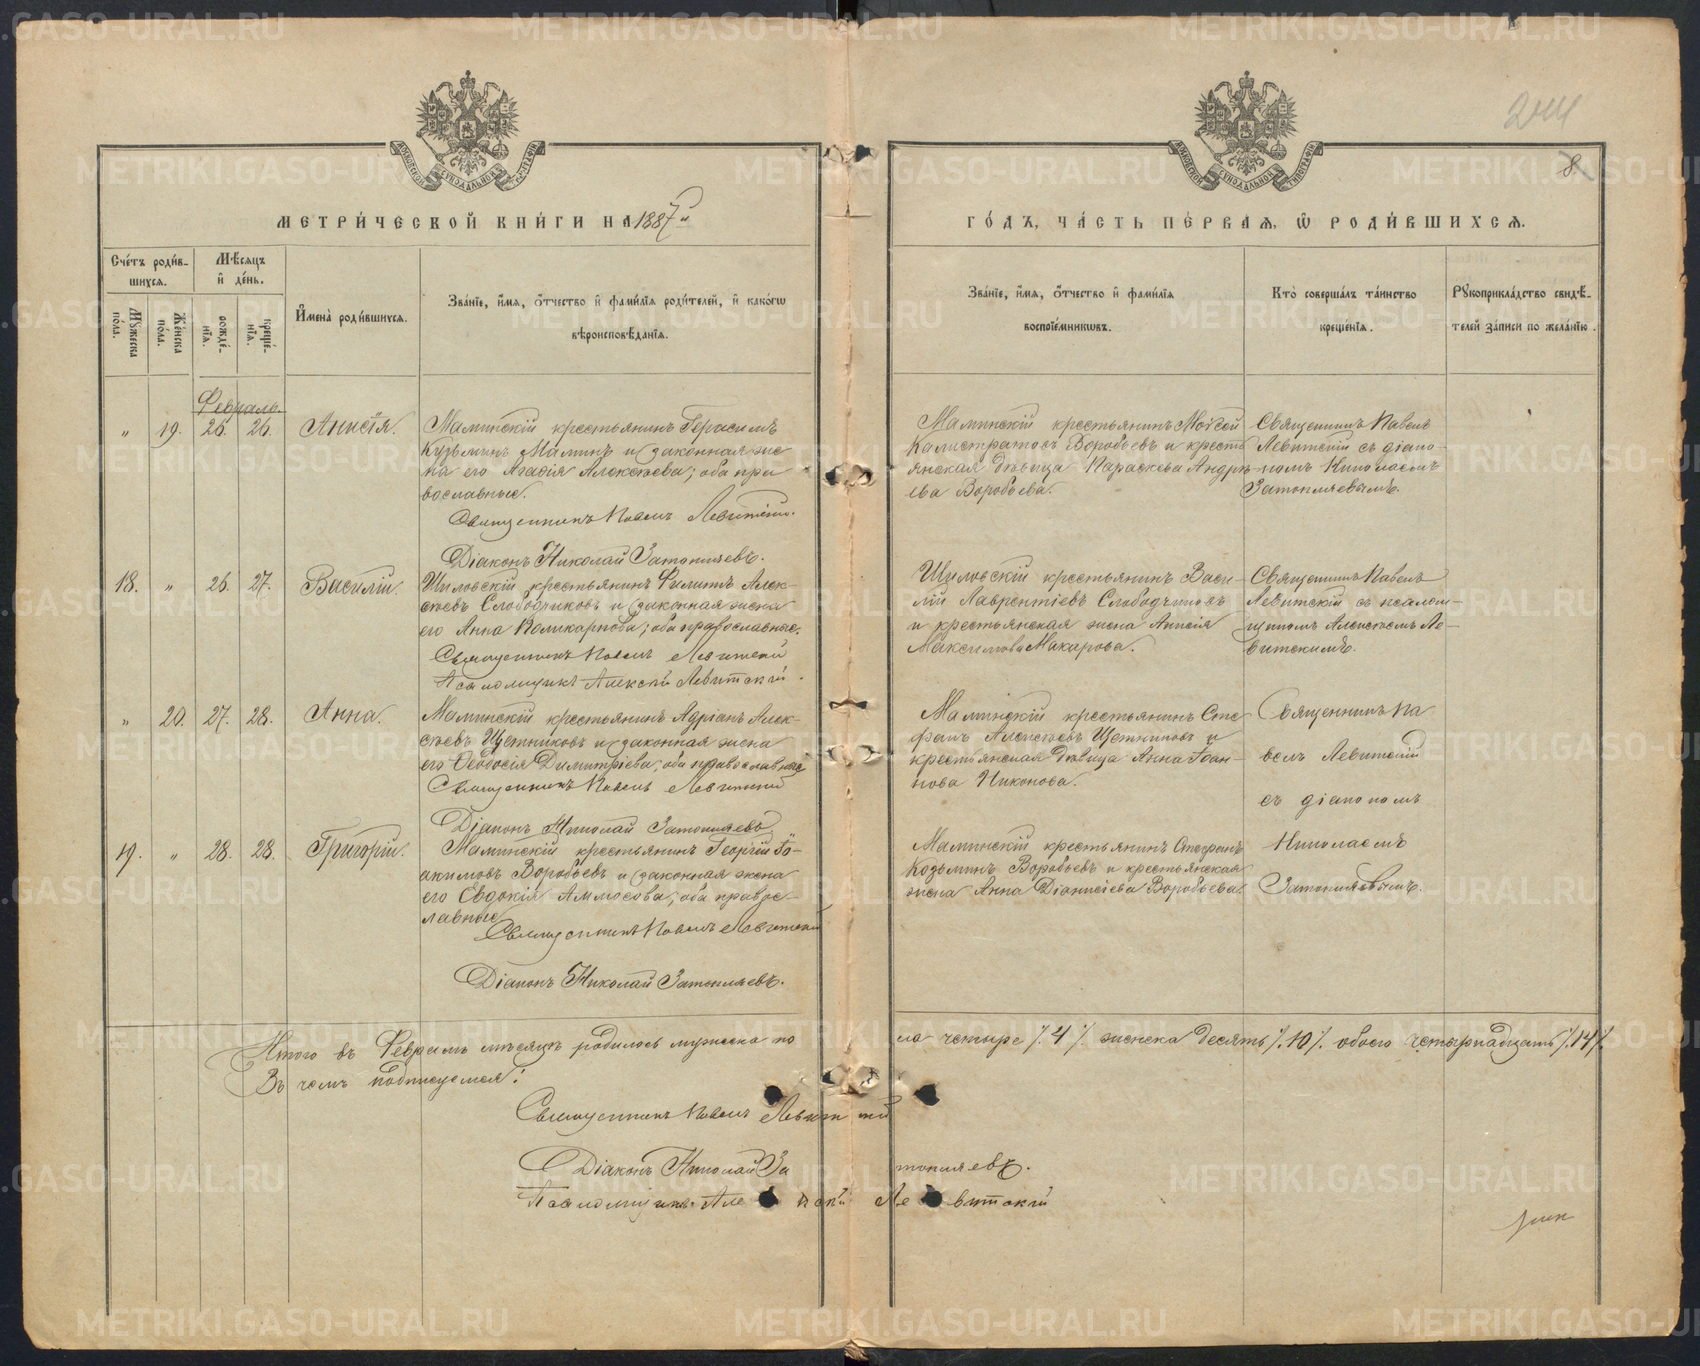 МЕТРИ́ЧЕСКОЙ КНИ́ГИ НА 1887 й
ГО́ДЪ, ЧА́СТЬ ПЕ́РВАѦ, Ѿ РОДИ́ВШИХСѦ.
8
Сче́тъ роди́в-
шихся.
Мѣсяцъ
и де́нь.
Мꙋ́жеска
по́ла.
Же́нска
по́ла.
рожде́-
нїя.
креще́-
нїя.
И҆мена̀ роди́вшихся.
Зва́нїе, и҆́мя, ѻ҆́тчество и҆ фами́лїя роди́телей, и҆ како́гѡ
вѣроисповѣ́данїя.
Зва́нїе, и҆́мя, ѻ҆́тчество и҆ фами́лїя
воспрїе́мникѡвъ.
Кто̀ соверша́лъ та́инство
креще́нїя.
Рꙋкоприкла́дство свидѣ́-
телей за́писи по жела́нїю.
Февраль.
" 19. 26. 26. Анисія.
Маминскій крестьянинъ Герасимъ
Кузьминъ Маминъ и законная же
на его Агафія Алексѣева; оба пра
вославные.
Священникъ Павелъ Левитскій.
Діаконъ Николай Затопляевъ.
Маминскій крестьянинъ Моѵсей
Калистратовъ Воробьевъ и кресть
янская дѣвица Параскева Андрѣ
ева Воробьева.
Священникъ Павелъ
Левитскій съ діако-
номъ Николаемъ
Затопляевымъ.
18. " 26. 27. Василій.
Шиловскій крестьянинъ Филиппъ Алек-
сѣевъ Слободчиковъ и законная жена
его Анна Поликарпова; оба православные.
Священникъ Павелъ Левитскій
Псаломщикъ Алексѣй Левитскій.
Шиловскій крестьянинъ Васи-
лій Лаврентіевъ Слободчиковъ
и крестьянская жена Анисія
Максимова Макарова.
Священникъ Павелъ
Левитскій съ псалом-
щикомъ Алексѣемъ Ле-
витскимъ.
" 20. 27. 28. Анна.
Маминскій крестьянинъ Адріанъ Алек-
сѣевъ Щетниковъ и законная жена
его Ѳеодосія Димитріева; оба православные
Священникъ Павелъ Левитскій
Діаконъ Николай Затопляевъ
Маминскій крестьянинъ Сте
фанъ Алексѣевъ Щетниковъ и
крестьянская дѣвица Анна Іоан-
нова Никонова.
Священникъ Па
велъ Левитскій
съ діакономъ
Николаемъ
Затопляевымъ.
19. " 28. 28. Григорій.
Маминскій крестьянинъ Георгій Іо-
акимовъ Воробьевъ и законная жена
его Евдокія Аммосова; оба правос-
лавные
Священникъ Павелъ Левитскій
Діаконъ Николай Затопляевъ.
Маминскій крестьянинъ Стефанъ
Козьминъ Воробьевъ и крестьянская
жена Анна Діонисіева Воробьева.
Итого въ Февралѣ мѣсяцѣ родилось мужеска по
ла четыре ⁒ 4 ⁒ женска десять ⁒ 10 ⁒ обоего четырнадцать ⁒ 14 ⁒
Въ чемъ подписуемся:
Священникъ Павелъ Левитскій
Діаконъ Николай Затопляевъ.
Псаломщикъ Алексѣй Левитскій
METRIKI.GASO-URAL.RU